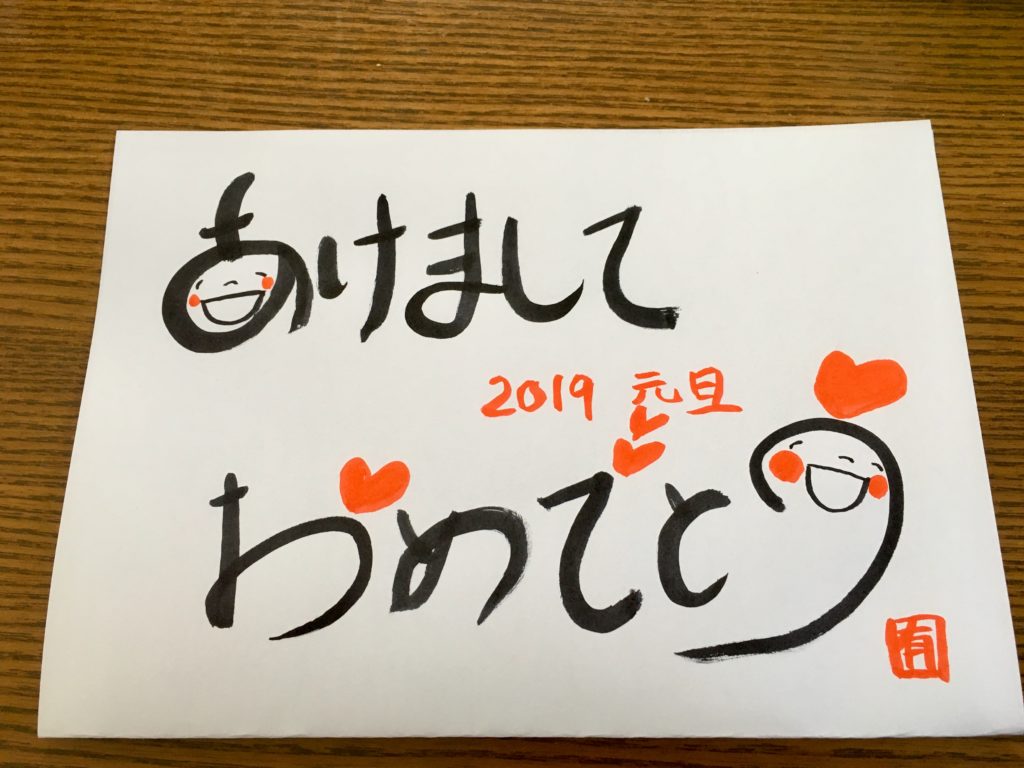 あけまして
2019 元旦
おめでとう
有